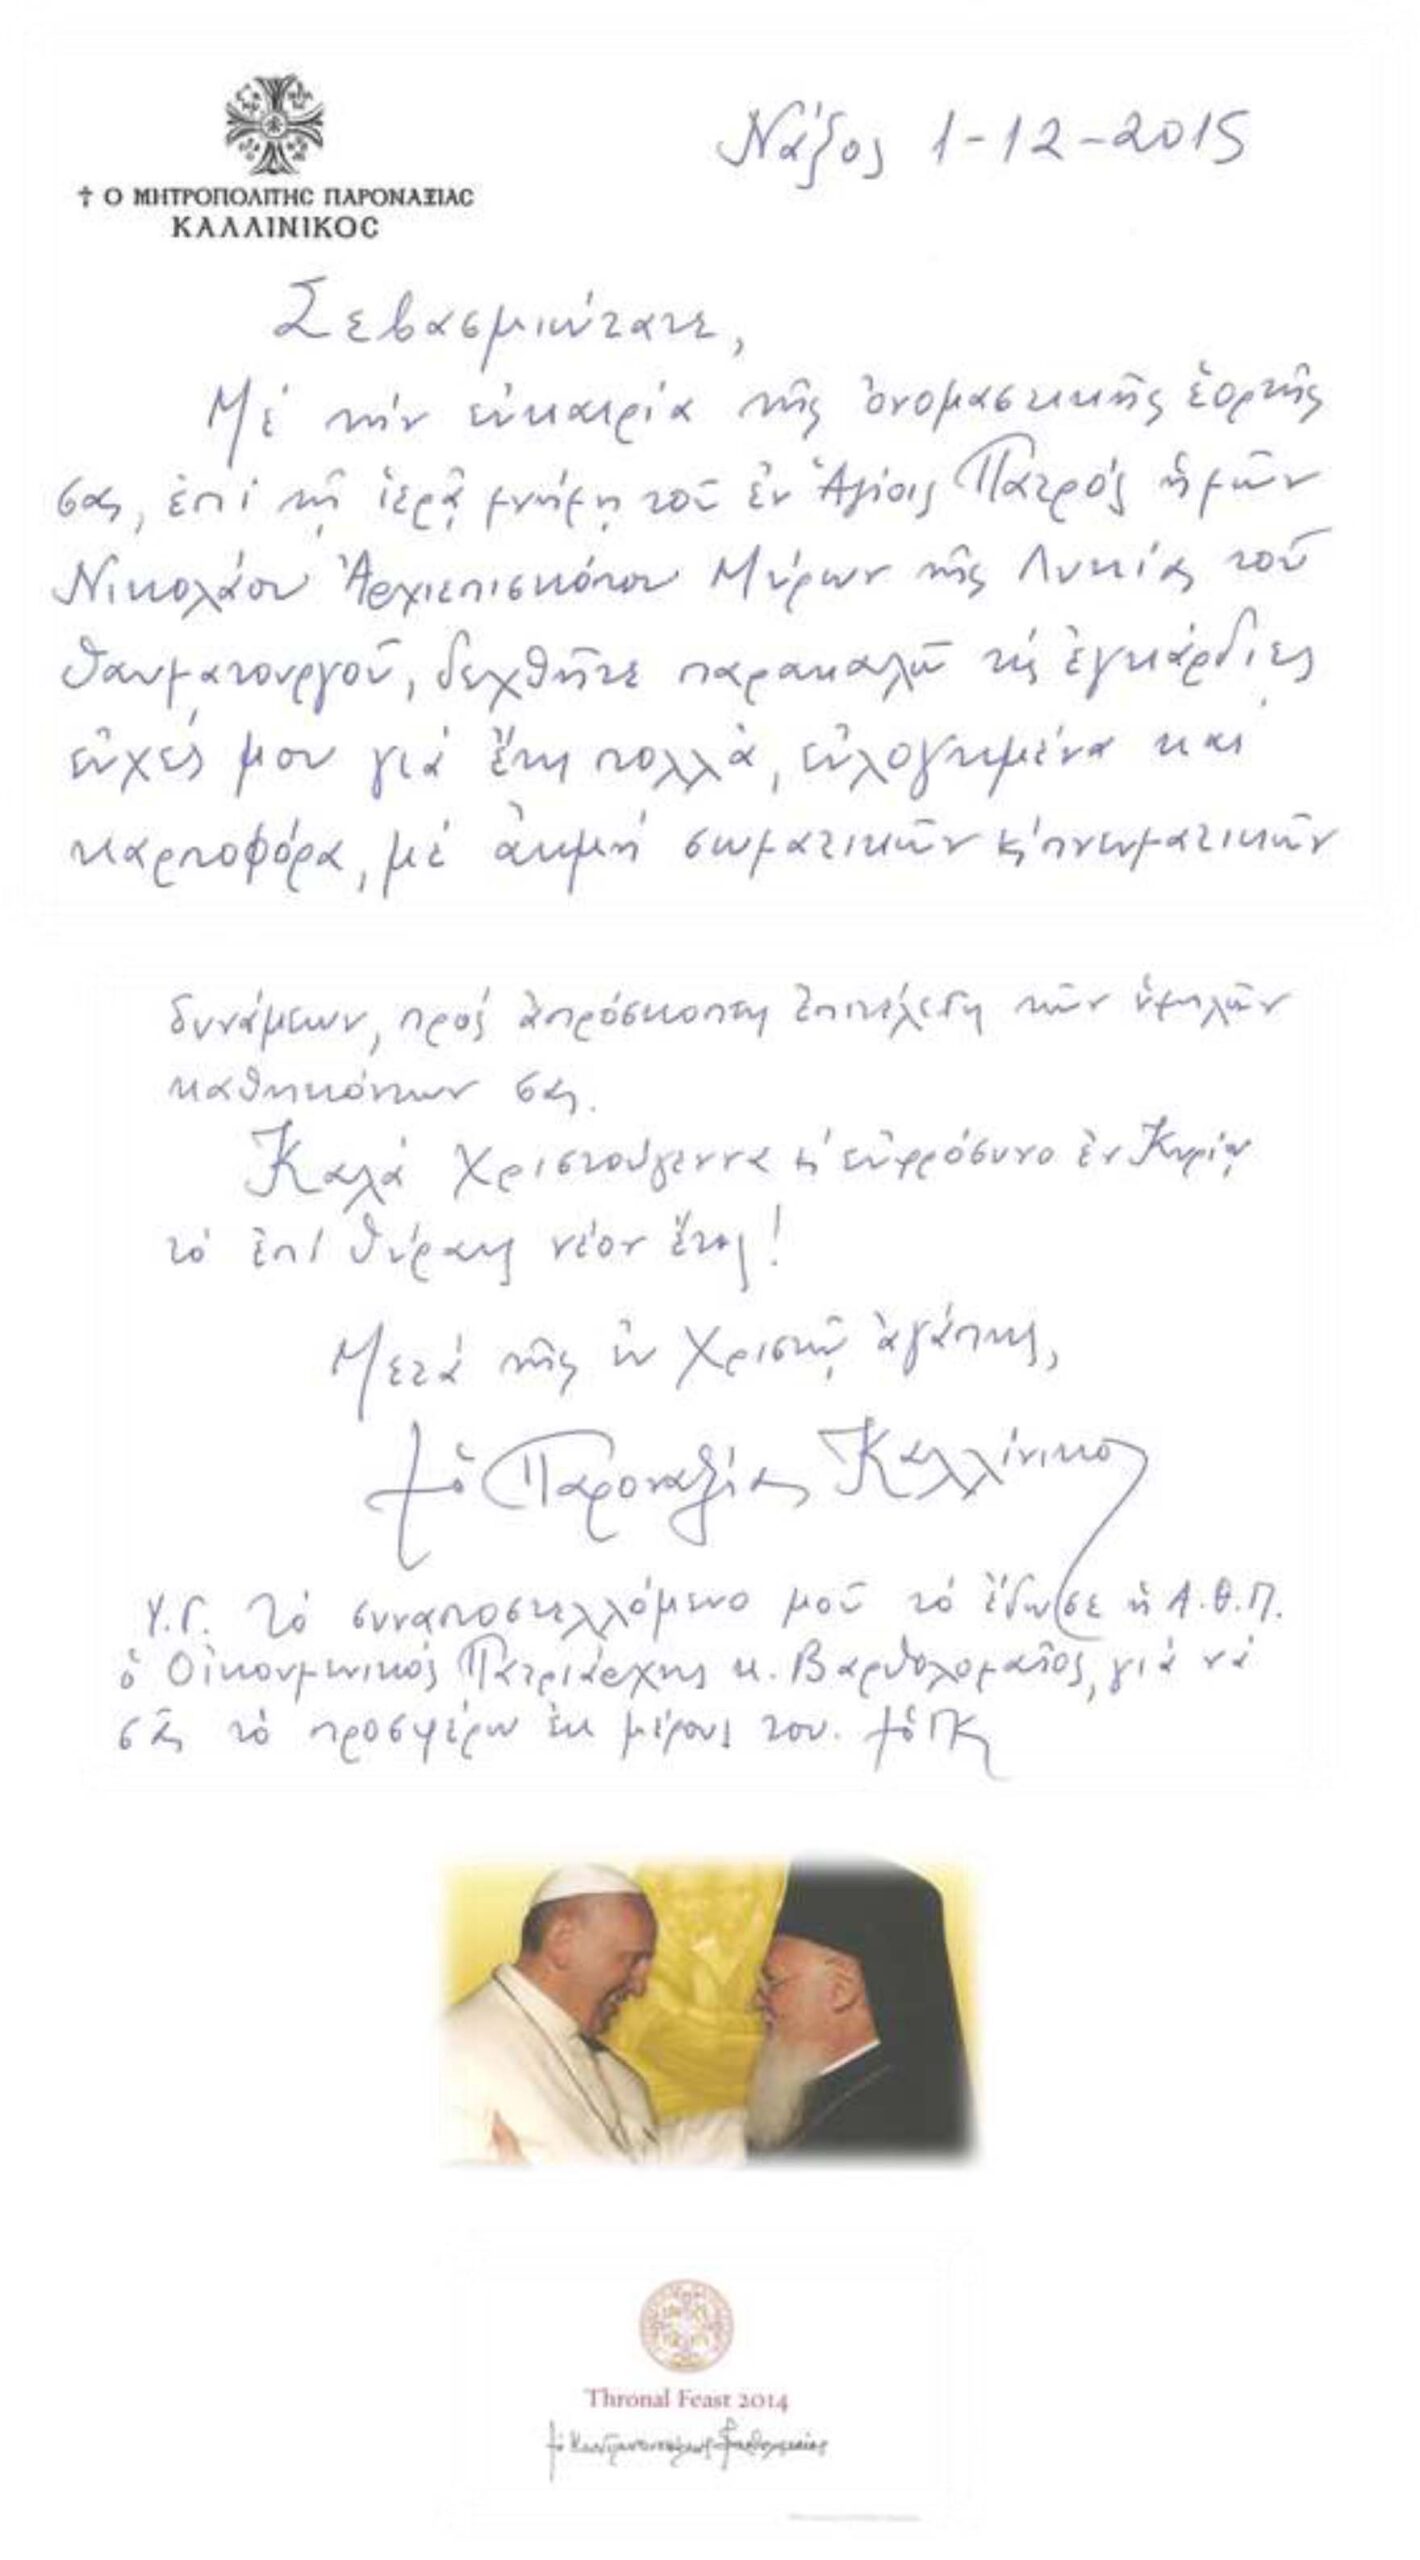 † Ο ΜΗΤΡΟΠΟΛΙΤΗC ΠΑΡΟΝΑΞΙΑC
ΚΑΛΛΙΝΙΚΟC
Νάξος 1-12-2015
Σεβασμιώτατε,
Μέ τήν εὐκαιρία τῆς ὀνομαστικῆς ἑορτῆς
σας, ἐπί τῇ ἱερᾷ μνήμῃ τοῦ ἐν Ἁγίοις Πατρός ἡμῶν
Νικολάου Ἀρχιεπισκόπου Μύρων τῆς Λυκίας τοῦ
θαυματουργοῦ, δεχθῆτε παρακαλῶ τίς ἐγκάρδιες
εὐχές μου γιά ἔτη πολλά, εὐλογημένα καί
καρποφόρα, μέ ἀκμή σωματικῶν ϗ πνευματικῶν
δυνάμεων, πρός ἀπρόσκοπτη ἐπιτέλεση τῶν ὑψηλῶν
καθηκόντων σας.
Καλά Χριστούγεννα ϗ εὐφρόσυνο ἐν Κυρίῳ
τό ἐπί θύραις νέον ἔτος!
Μετά τῆς ἐν Χριστῷ ἀγάπης,
† ὁ Παροναξίας Καλλίνικος
Υ.Γ. Τό συναποστελλόμενο μοῦ τό ἔδωσε ἡ Α.Θ.Π.
ὁ Οἰκουμενικός Πατριάρχης κ. Βαρθολομαῖος, γιά νά
σᾶς τό προσφέρω ἐκ μέρους του. † ὁ ΠΚ
Thronal Feast 2014